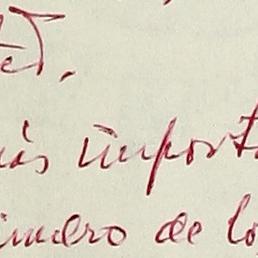 más import
número de lo